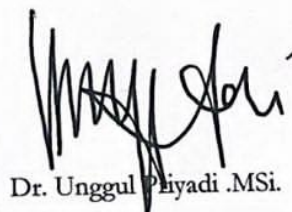 Dr. Unggul Priyadi .MSi.